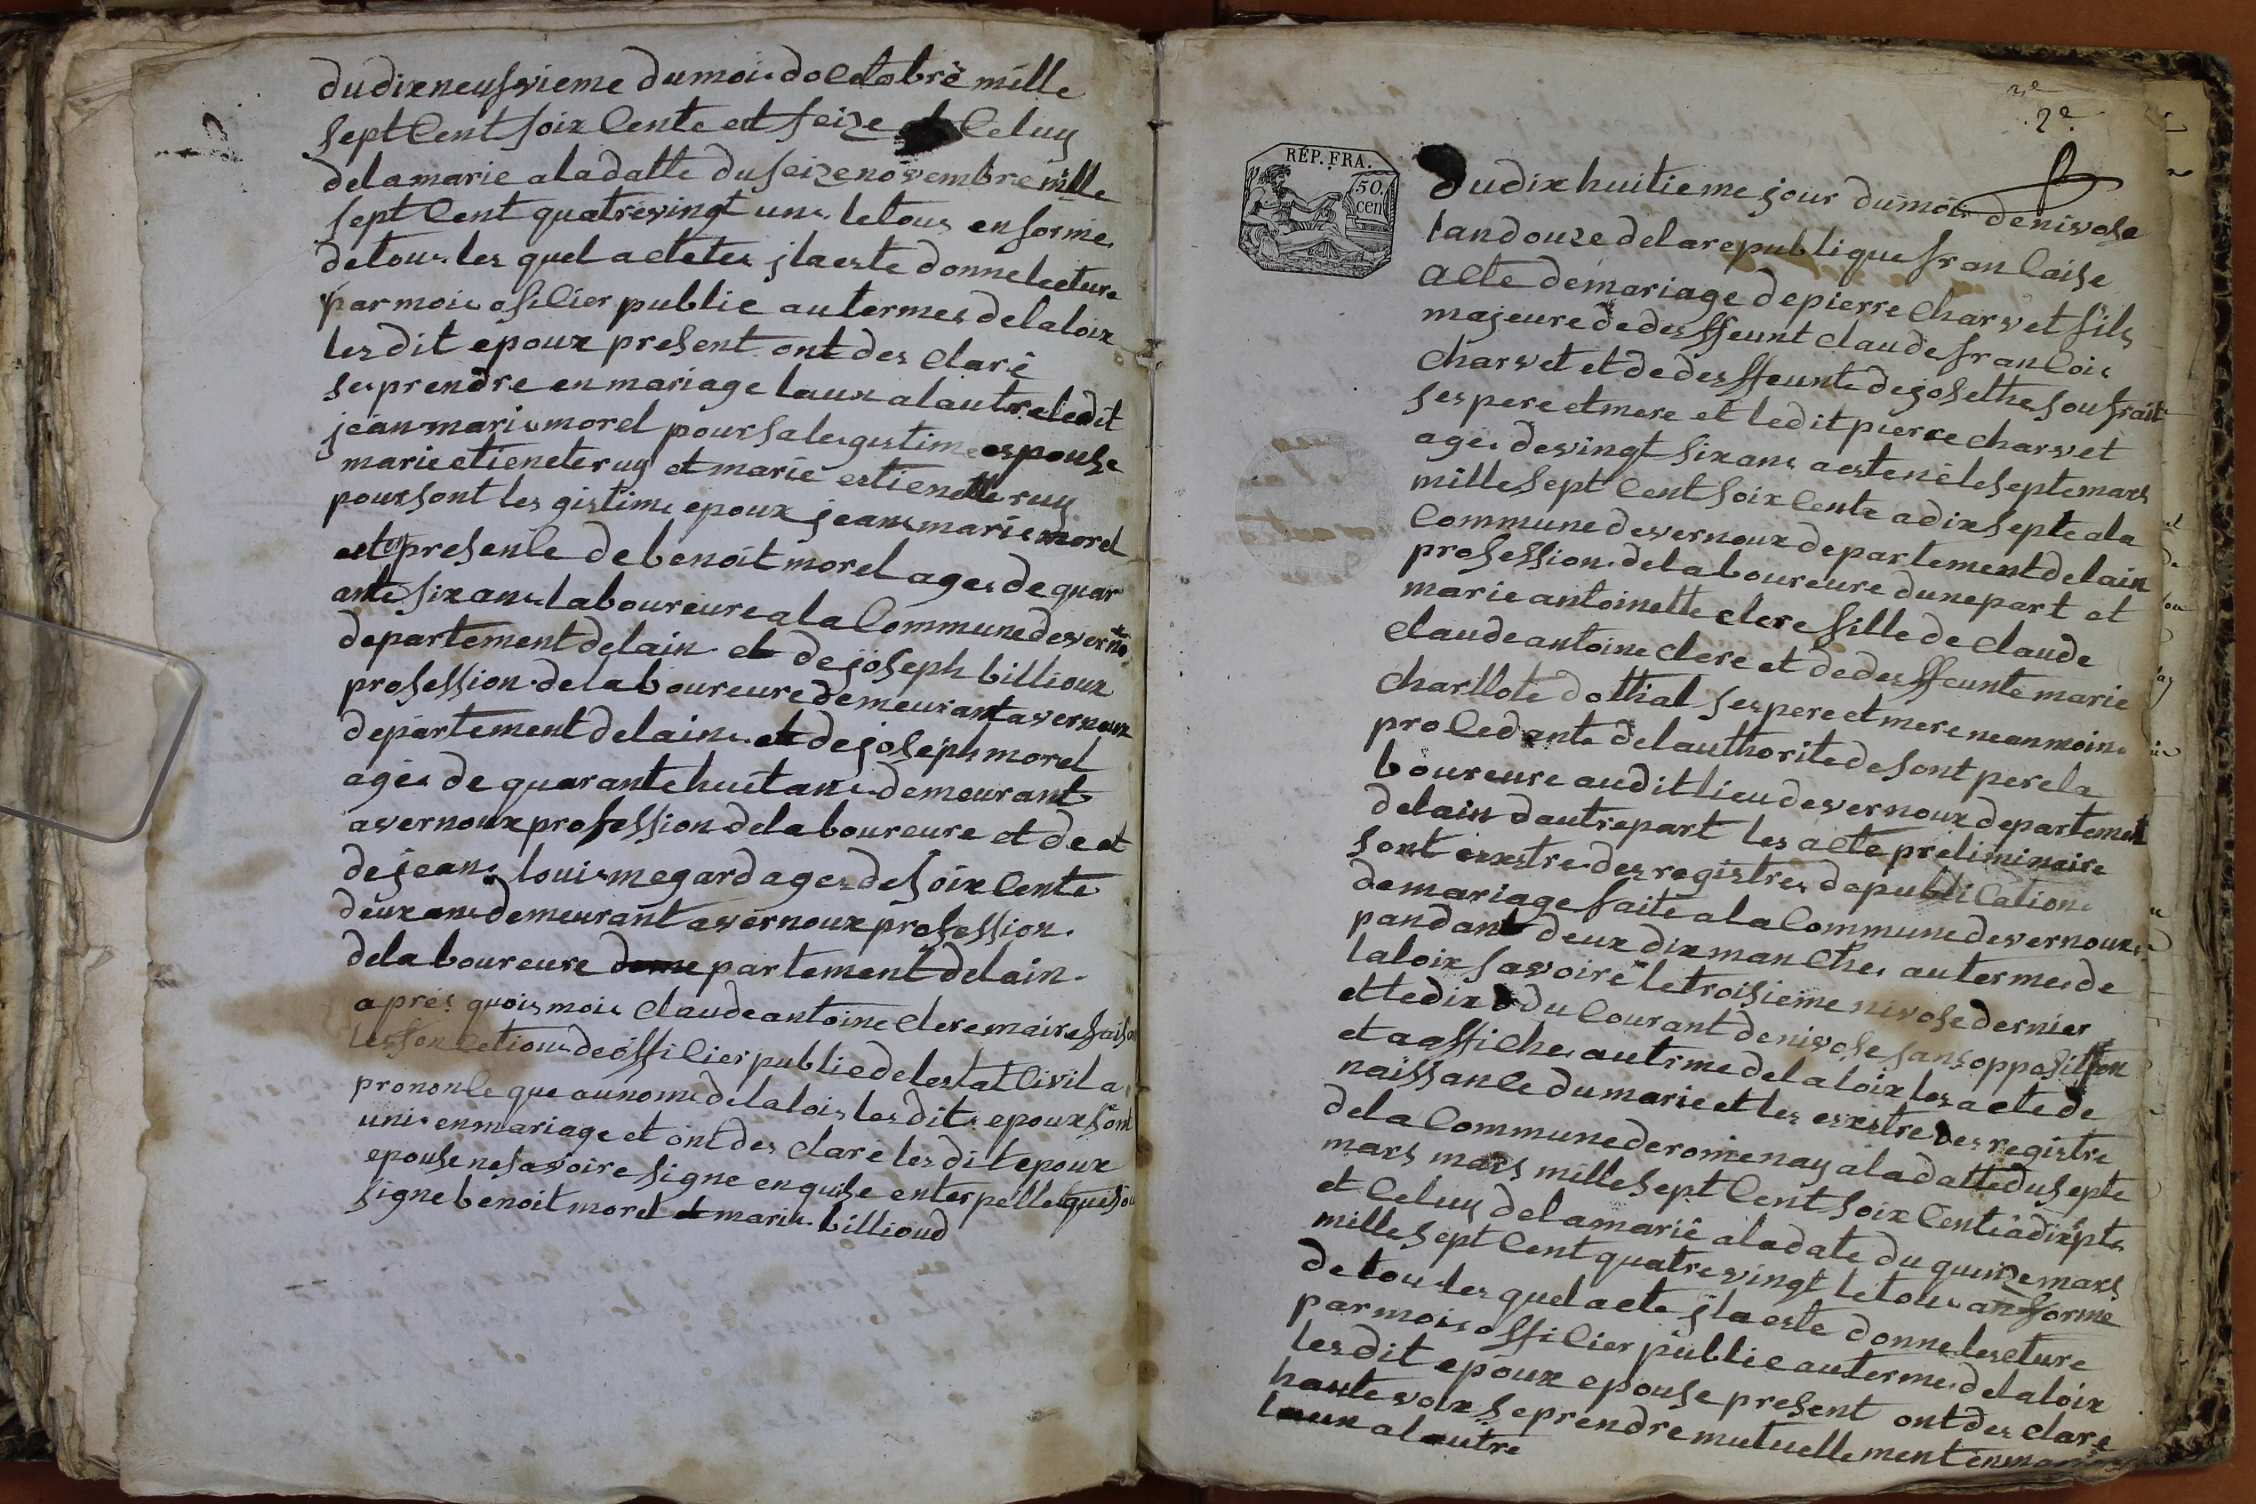 du dixneufvieme du mois doctobre mille
sept Cent soix Cente et seize Celuy
de la marie a la datte du seize novembre mille
sept Cent quatrevingt un. le tous en forme
de tous les quel actetes jl a este donne lecture
par mois ofilier public au termes de la loix
les dit epoux present ont des clare
se prendre en mariage l aux a l autre le dit
jean marie morel pour sa legistime espouse
marie etienete ruy et marie estienette ruy
pour sont les gistime epoux jean marie morel
en presenle de benoit morel ages de quar
ante six ans laboureure a la Commune de verno
departement de lain et de joseph billioux
profession de laboureure demeurant a vernoux
departement de lain et de joseph morel
ages de quarante huit ans demeurant
a vernoux profession de laboureure et de et
de jean louis megard ages de soix Cente
deux ans demeurant a vernoux profession
de laboureure partement de lain
apres quois mois Claude antoine Clere maire faison
les fonlctions de offilier public de lestat Civil a
prononle que au nom de la lois les dit epoux sont
unis en mariage et ont des clare les dit epoux
epouse ne savoire signe en quise enterpelle qui son
signe benoit morel et marie billioud
2e
2e
REP. FRA.
50.
cen
du dix huitieme jour du mois de nivose
lan douze de la republique franlaise
acte de mariage de pierre Charvet fils
majeure de desffeunt claude franlois
Charvet et de desffeunte de josethe soufrait
ses pere et mere et le dit pierre charvet
ages de vingt six ans a este né le septe mars
mille sept Cent soix Cente a dix septe a la
Commune de vernoux departement de lain
profession de laboureure dune part et
marie antoinette clere fille de claude
claude antoine clere et de desffeunte marie
charllote dothal ses pere et mere neanmoins
proledante de lauthorite de sont pere la
boureure audit lieu de vernoux departement
de lain dautre part les acte preliminaire
sont exestre des registres de publication
de mariage faite a la Commune de vernoux
pandant deux dixmanche au termes de
la loix savoire le troisieme nivose dernier
et le dix du Courant de nivose sans oppasition
et affiche autrme de la loix les acte de
naissanle du marie et les exestre des registre
de la Commune de romenay a la datte du septe
mars mars mille sept Cent soix Cente a dix septe
et Celuy de la marie a la date du quinze mars
mille sept Cent quatrevingt le tous an forme
de tous les quel acte jl a este donne lesture
par mois offilier public au termes de la loix
les dit epoux epouse present ont des clare
haute voix se prendre mutuellement en mariage
l aux a l autre